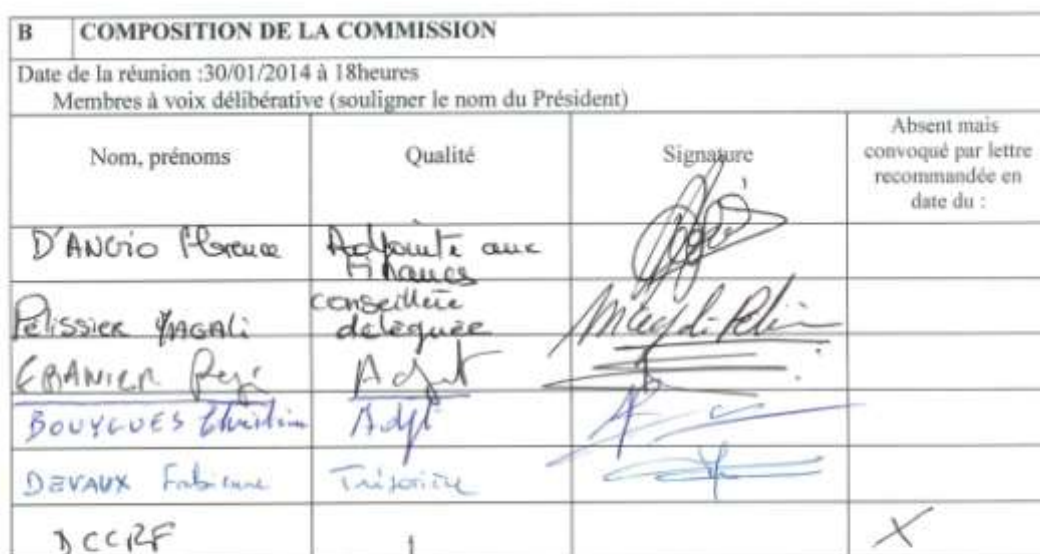 B COMPOSITION DE LA COMMISSION
Date de la réunion :30/01/2014 à 18heures
Membres à voix délibérative (souligner le nom du Président)
Nom, prénoms Qualité Signature Absent mais convoqué par lettre recommandée en date du :
D'ANGIO Florence Adjointe aux Finances
Pelissier MAGALi conseillère déléguée Magali Pelissier
GRANIER Adjt
BOUYGUES Christian Adjt
DEVAUX Fabienne Trésorière
DCCRF X